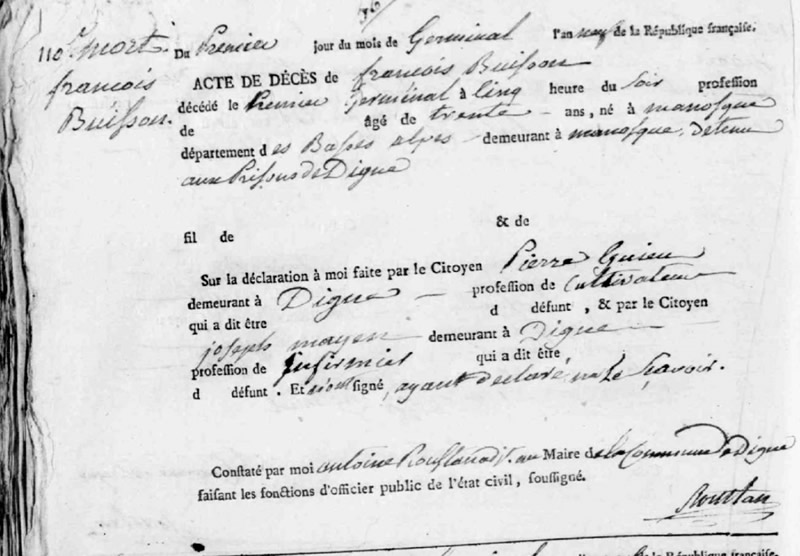 110e mort.
françois
Buisson.
Du Premier jour du mois de Germinal l'an neuf de la République françaife.
ACTE DE DÉCÈS de françois Buisson
décédé le Premier Germinal à Cinq heure du Soir profeffion
de âgé de trente ans, né à manosque
département des Basses alpes demeurant à manosque, detenu
aux Prisons de Digne
fil de & de
Sur la déclaration à moi faite par le Citoyen Pierre Guieu
demeurant à Digne profeffion de Cultivateur
qui a dit être d défunt, & par le Citoyen
joseph mayen demeurant à Digne
profeffion de Infirmier qui a dit être,
d défunt. Et n'ont figné, ayant declaré ne le Sçavoir.
Conftaté par moi antoine Roustan adjt. au Maire de la Commune de Digne
faifant les fonctions d'officier public de l'état civil, fouffigné.
Roustan
de la République françaife.